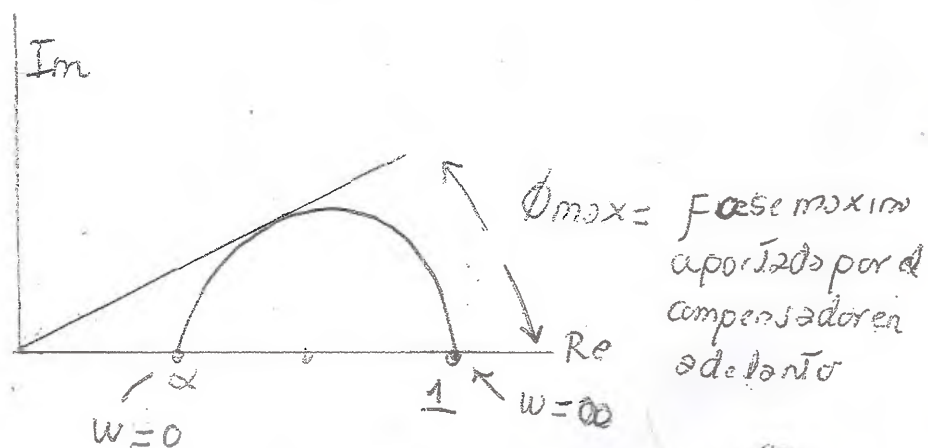 Im
Ømax = Fase maxima
aportada por el
compensador en
adelanto
Re
α
1
w = ∞
w = 0